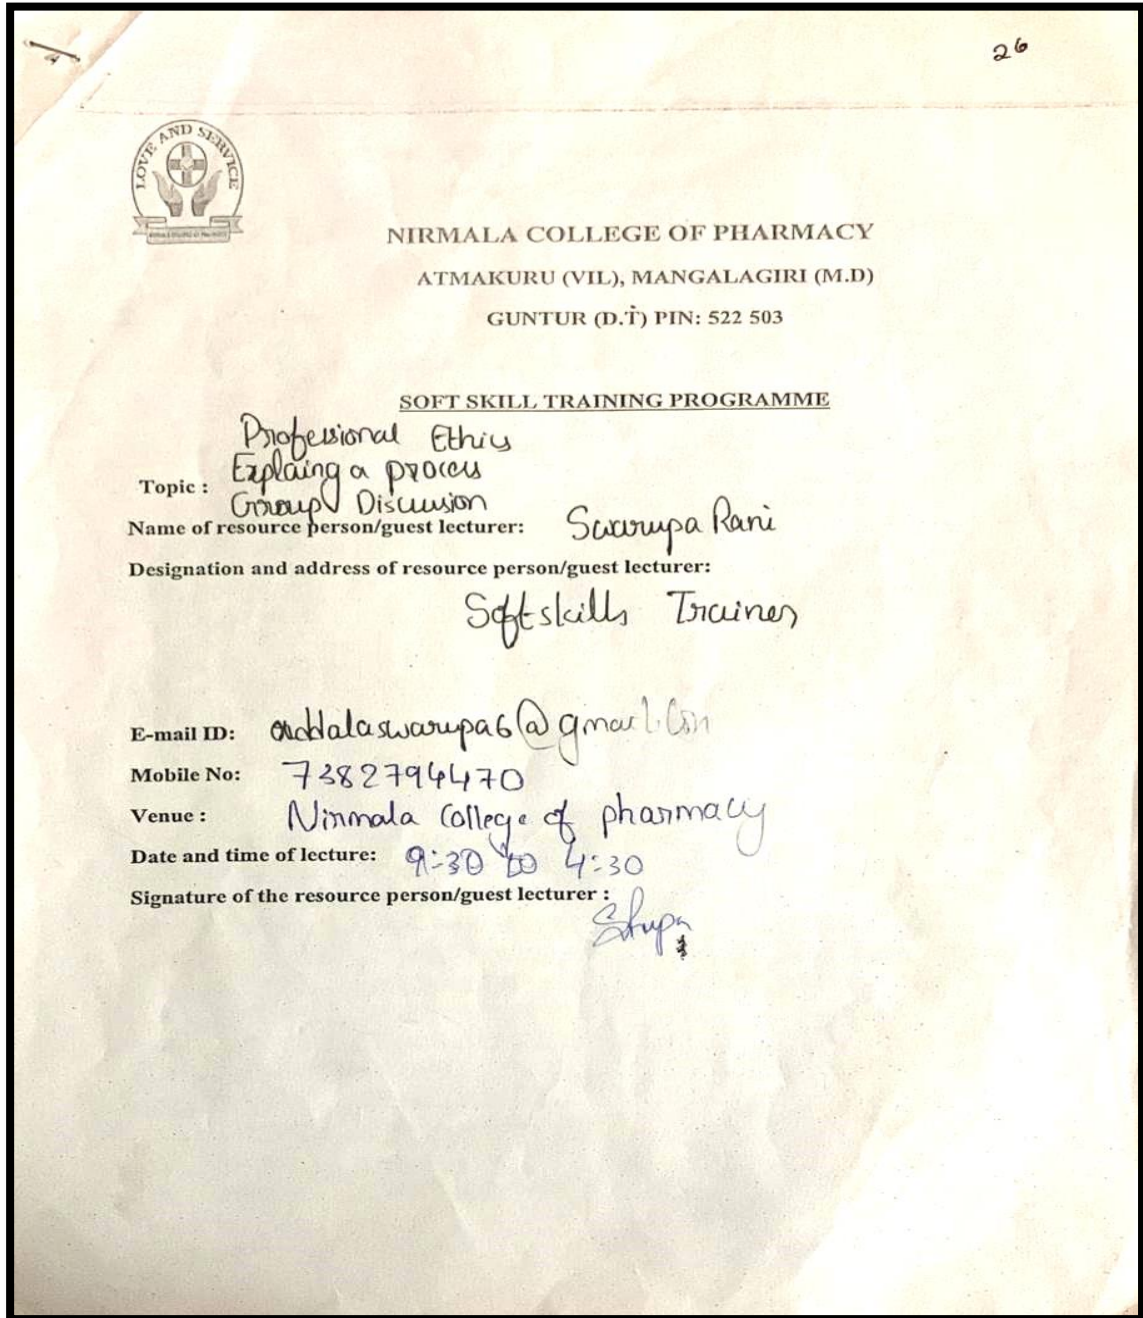 26
LOVE AND SERVICE
NIRMALA COLLEGE OF PHARMACY
ATMAKURU (VIL), MANGALAGIRI (M.D)
GUNTUR (D.T) PIN: 522 503
SOFT SKILL TRAINING PROGRAMME
Professional Ethics
Explaing a process
Topic :
Group Discussion
Name of resource person/guest lecturer: Swarupa Rani
Designation and address of resource person/guest lecturer:
Softskills Trainer
E-mail ID: @gmail.com
Mobile No: 7382794470
Venue : Nirmala College of pharmacy
Date and time of lecture: 9:30 to 4:30
Signature of the resource person/guest lecturer :